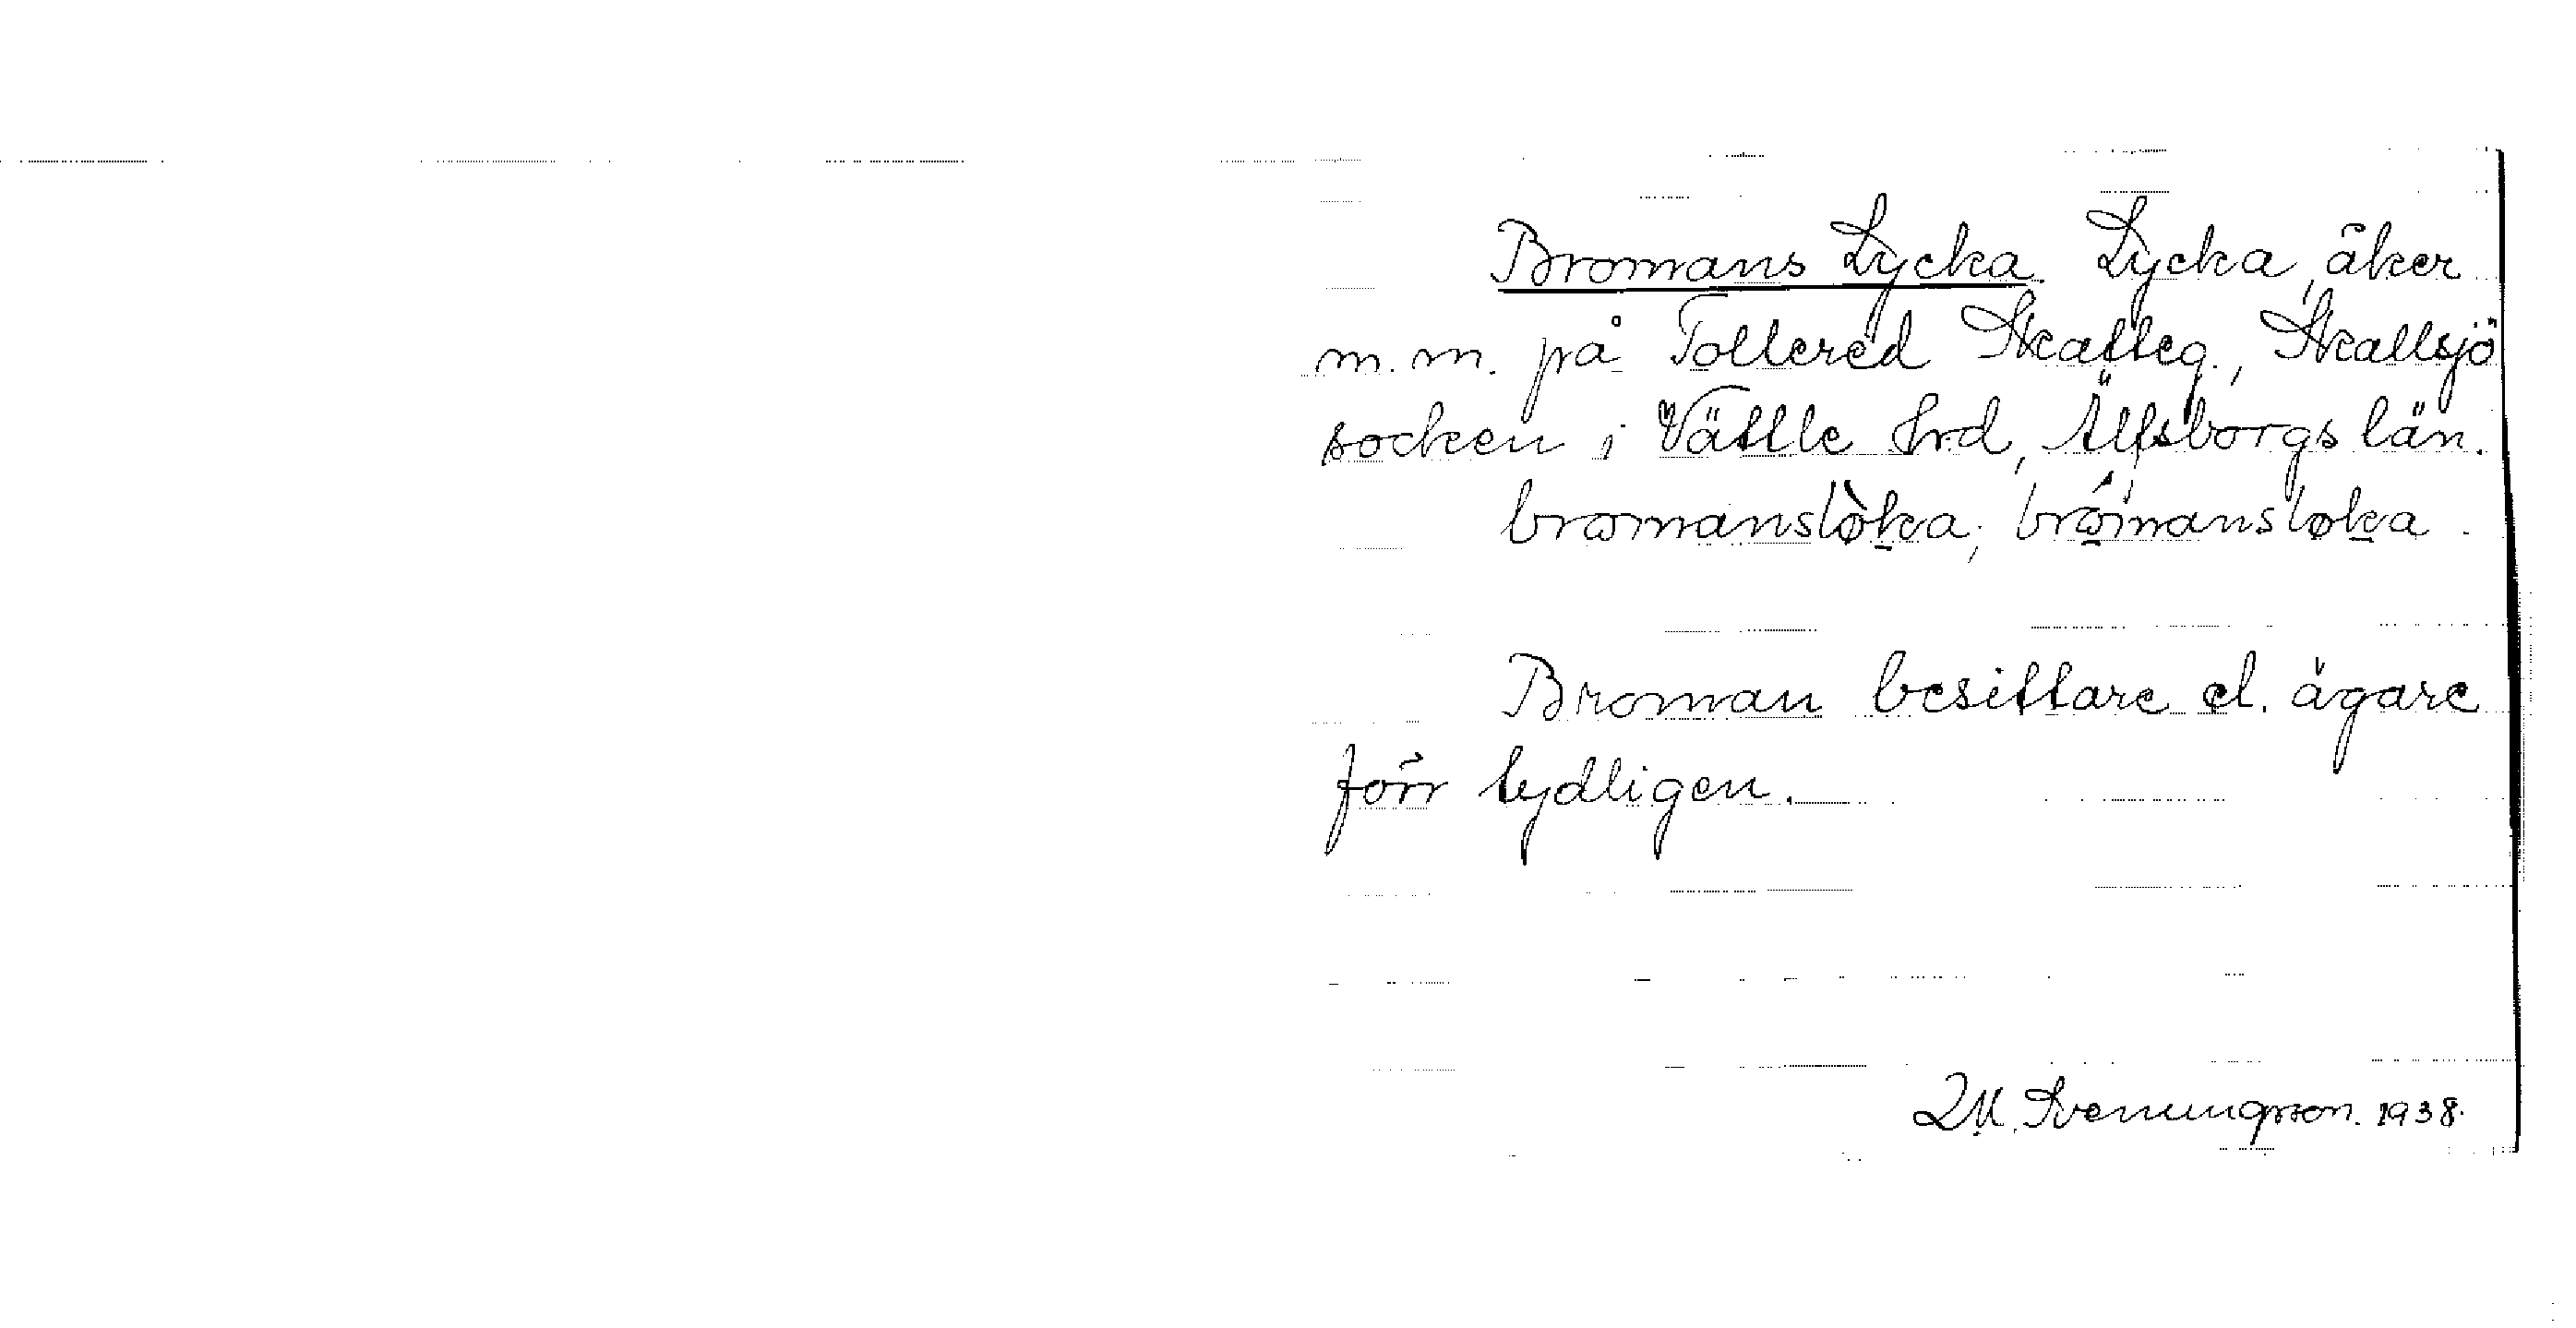 Bromans Lycka. Lycka, åker
m.m. på Tollered Skatteg., Skallsjö
socken i Vättle Hrd, Älfsborgs län.
bromansløka; bromansløka.
Broman besittare el. ägare
förr tydligen.
Svenungsson. 1938.